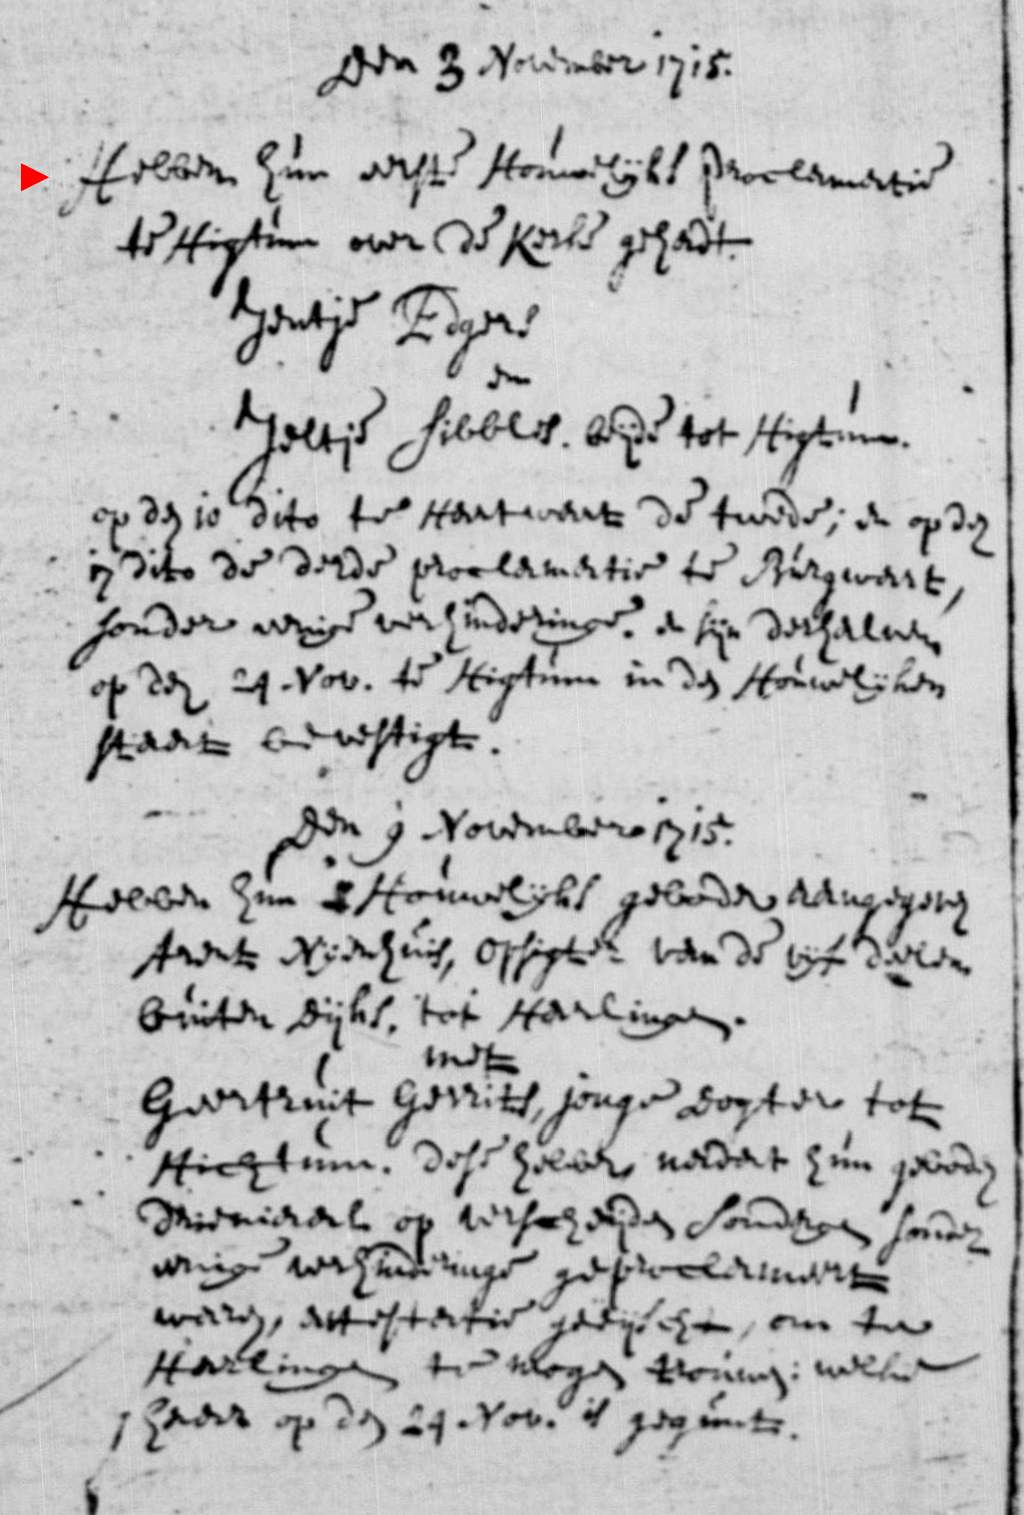 Den 3 November 1715.
Hebben hún eerste Hoúwelijks proclamatie
te Higtúm over de Kerke gehadt.
Jentje Edgers
en
Jeltje Sibbles. beijde tot Higtúm.
op den 10 dito te Hartwart de twede; en op den
17 dito de derde proclamatie te Búrgwart,
sonder enige verhinderinge. en sijn derhalven
op den 24 Nov. te Higtúm in den Hoúwelijken
staat bevestigt.
Den 9 November 1715.
Hebben hún Hoúwelijks geboden aangegeven
Arent Nijenhúis, Opsigter van de vijf deelen
búiten dijks, tot Harlingen.
met
Geertrúit Gerrits, jonge dogter tot
Hichtúm. dese hebben nadat hún geboden
driemael op verscheijden sondagen sonder
enige verhinderinge geproclameert
waren, attestatie geëijscht, om tot
Harlingen te mogen troúwen: welke
haer op den 24 Nov. is gegúnt.